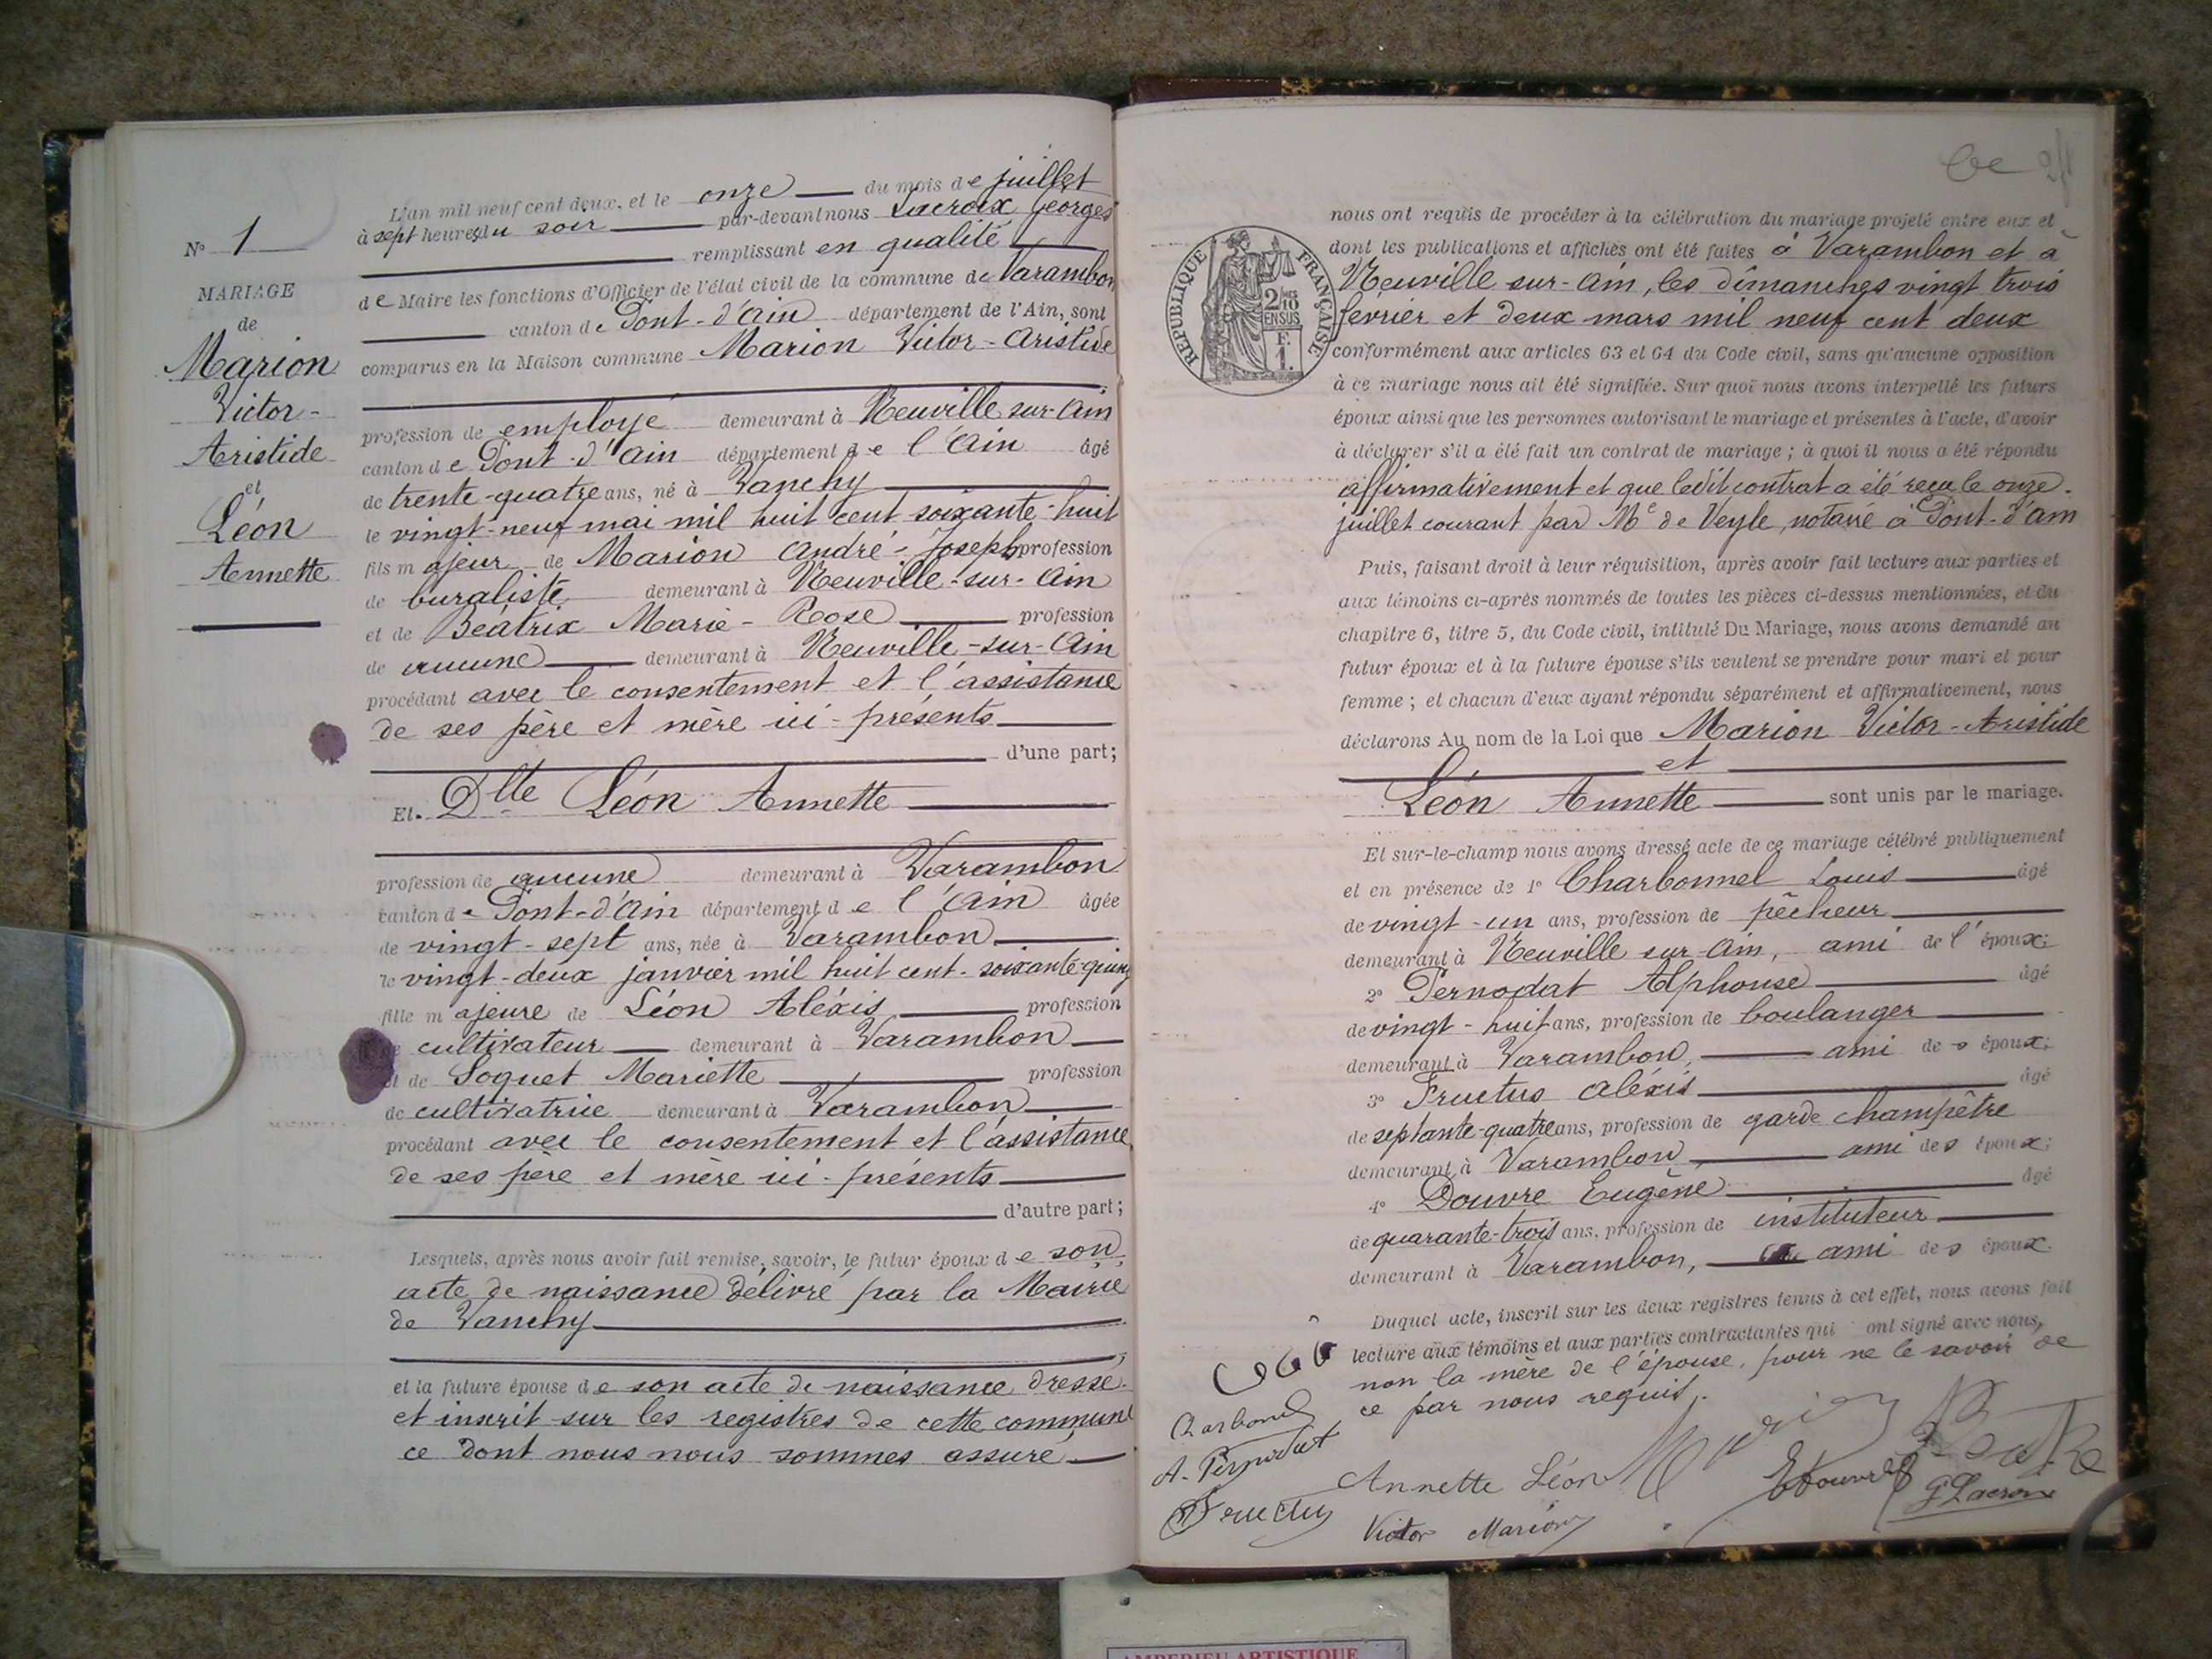 N° 1
MARIAGE
de
Marion
Victor-
Aristide
et
Léon
Annette
L'an mil neuf cent deux, et le onze du mois de juillet
à sept heures du soir par-devant nous Lacroix Georges
remplissant en qualité
de Maire les fonctions d'Officier de l'état civil de la commune de Varambon
canton de Pont-d'Ain département de l'Ain, sont
comparus en la Maison commune Marion Victor-Aristide
profession de employé demeurant à Neuville sur-Ain
canton de Pont-d'Ain département de l'Ain âgé
de trente-quatre ans, né à Vanchy
le vingt-neuf mai mil huit cent soixante-huit
fils majeur de Marion André-Joseph profession
de buraliste demeurant à Neuville-sur-Ain
et de Béatrix Marie-Rose profession
de aucune demeurant à Neuville-sur-Ain
procédant avec le consentement et l'assistance
de ses père et mère ici-présents
d'une part;
Et. Dlle Léon Annette
profession de aucune demeurant à Varambon
canton de Pont-d'Ain département de l'Ain âgée
de vingt-sept ans, née à Varambon
le vingt-deux janvier mil huit cent-soixante-quinz
fille majeure de Léon Aléxis profession
de cultivateur demeurant à Varambon
et de Soquet Mariette profession
de cultivatrice demeurant à Varambon
procédant avec le consentement et l'assistance
de ses père et mère ici-présents
d'autre part;
Lesquels, après nous avoir fait remise, savoir, le futur époux de son
acte de naissance délivré par la Mairie
de Vanchy
et la future épouse de son acte de naissance dressé
et inscrit sur les registres de cette commune
ce dont nous nous sommes assuré,
RÉPUBLIQUE FRANÇAISE
2/10 EN SUS
F. 1.
nous ont requis de procéder à la célébration du mariage projeté entre eux et
dont les publications et affiches ont été faites à Varambon et à
Neuville sur-Ain, les dimanches vingt trois
février et deux mars mil neuf cent deux
conformément aux articles 63 et 64 du Code civil, sans qu'aucune opposition
à ce mariage nous ait été signifiée. Sur quoi nous avons interpellé les futurs
époux ainsi que les personnes autorisant le mariage et présentes à l'acte, d'avoir
à déclarer s'il a été fait un contrat de mariage; à quoi il nous a été répondu
affirmativement et que ledit contrat a été reçu le onze
juillet courant par Me de Veyle, notaire à Pont-d'Ain
Puis, faisant droit à leur réquisition, après avoir fait lecture aux parties et
aux témoins ci-après nommés de toutes les pièces ci-dessus mentionnées, et du
chapitre 6, titre 5, du Code civil, intitulé Du Mariage, nous avons demandé au
futur époux et à la future épouse s'ils veulent se prendre pour mari et pour
femme; et chacun d'eux ayant répondu séparément et affirmativement, nous
déclarons Au nom de la Loi que Marion Victor-Aristide
et
Léon Annette sont unis par le mariage.
Et sur-le-champ nous avons dressé acte de ce mariage célébré publiquement
et en présence de 1° Charbonnel Louis âgé
de vingt-un ans, profession de pêcheur
demeurant à Neuville sur-Ain, ami de l'époux;
2° Pernodat Alphonse âgé
de vingt-huit ans, profession de boulanger
demeurant à Varambon, ami des époux;
3° Fructus Aléxis âgé
de septante-quatre ans, profession de garde champêtre
demeurant à Varambon, ami des époux;
4° Douvre Eugène âgé
de quarante-trois ans, profession de instituteur
demeurant à Varambon, ami des époux.
Duquel acte, inscrit sur les deux registres tenus à cet effet, nous avons fait
lecture aux témoins et aux parties contractantes qui ont signé avec nous,
non la mère de l'épouse, pour ne le savoir de
ce par nous requis.
Charbonel
A. Pernodat
Fructus
Annette Léon
Victor Marion
Marion
EDouvre
G Lacroix
AMPERIEU ARTISTIQUE